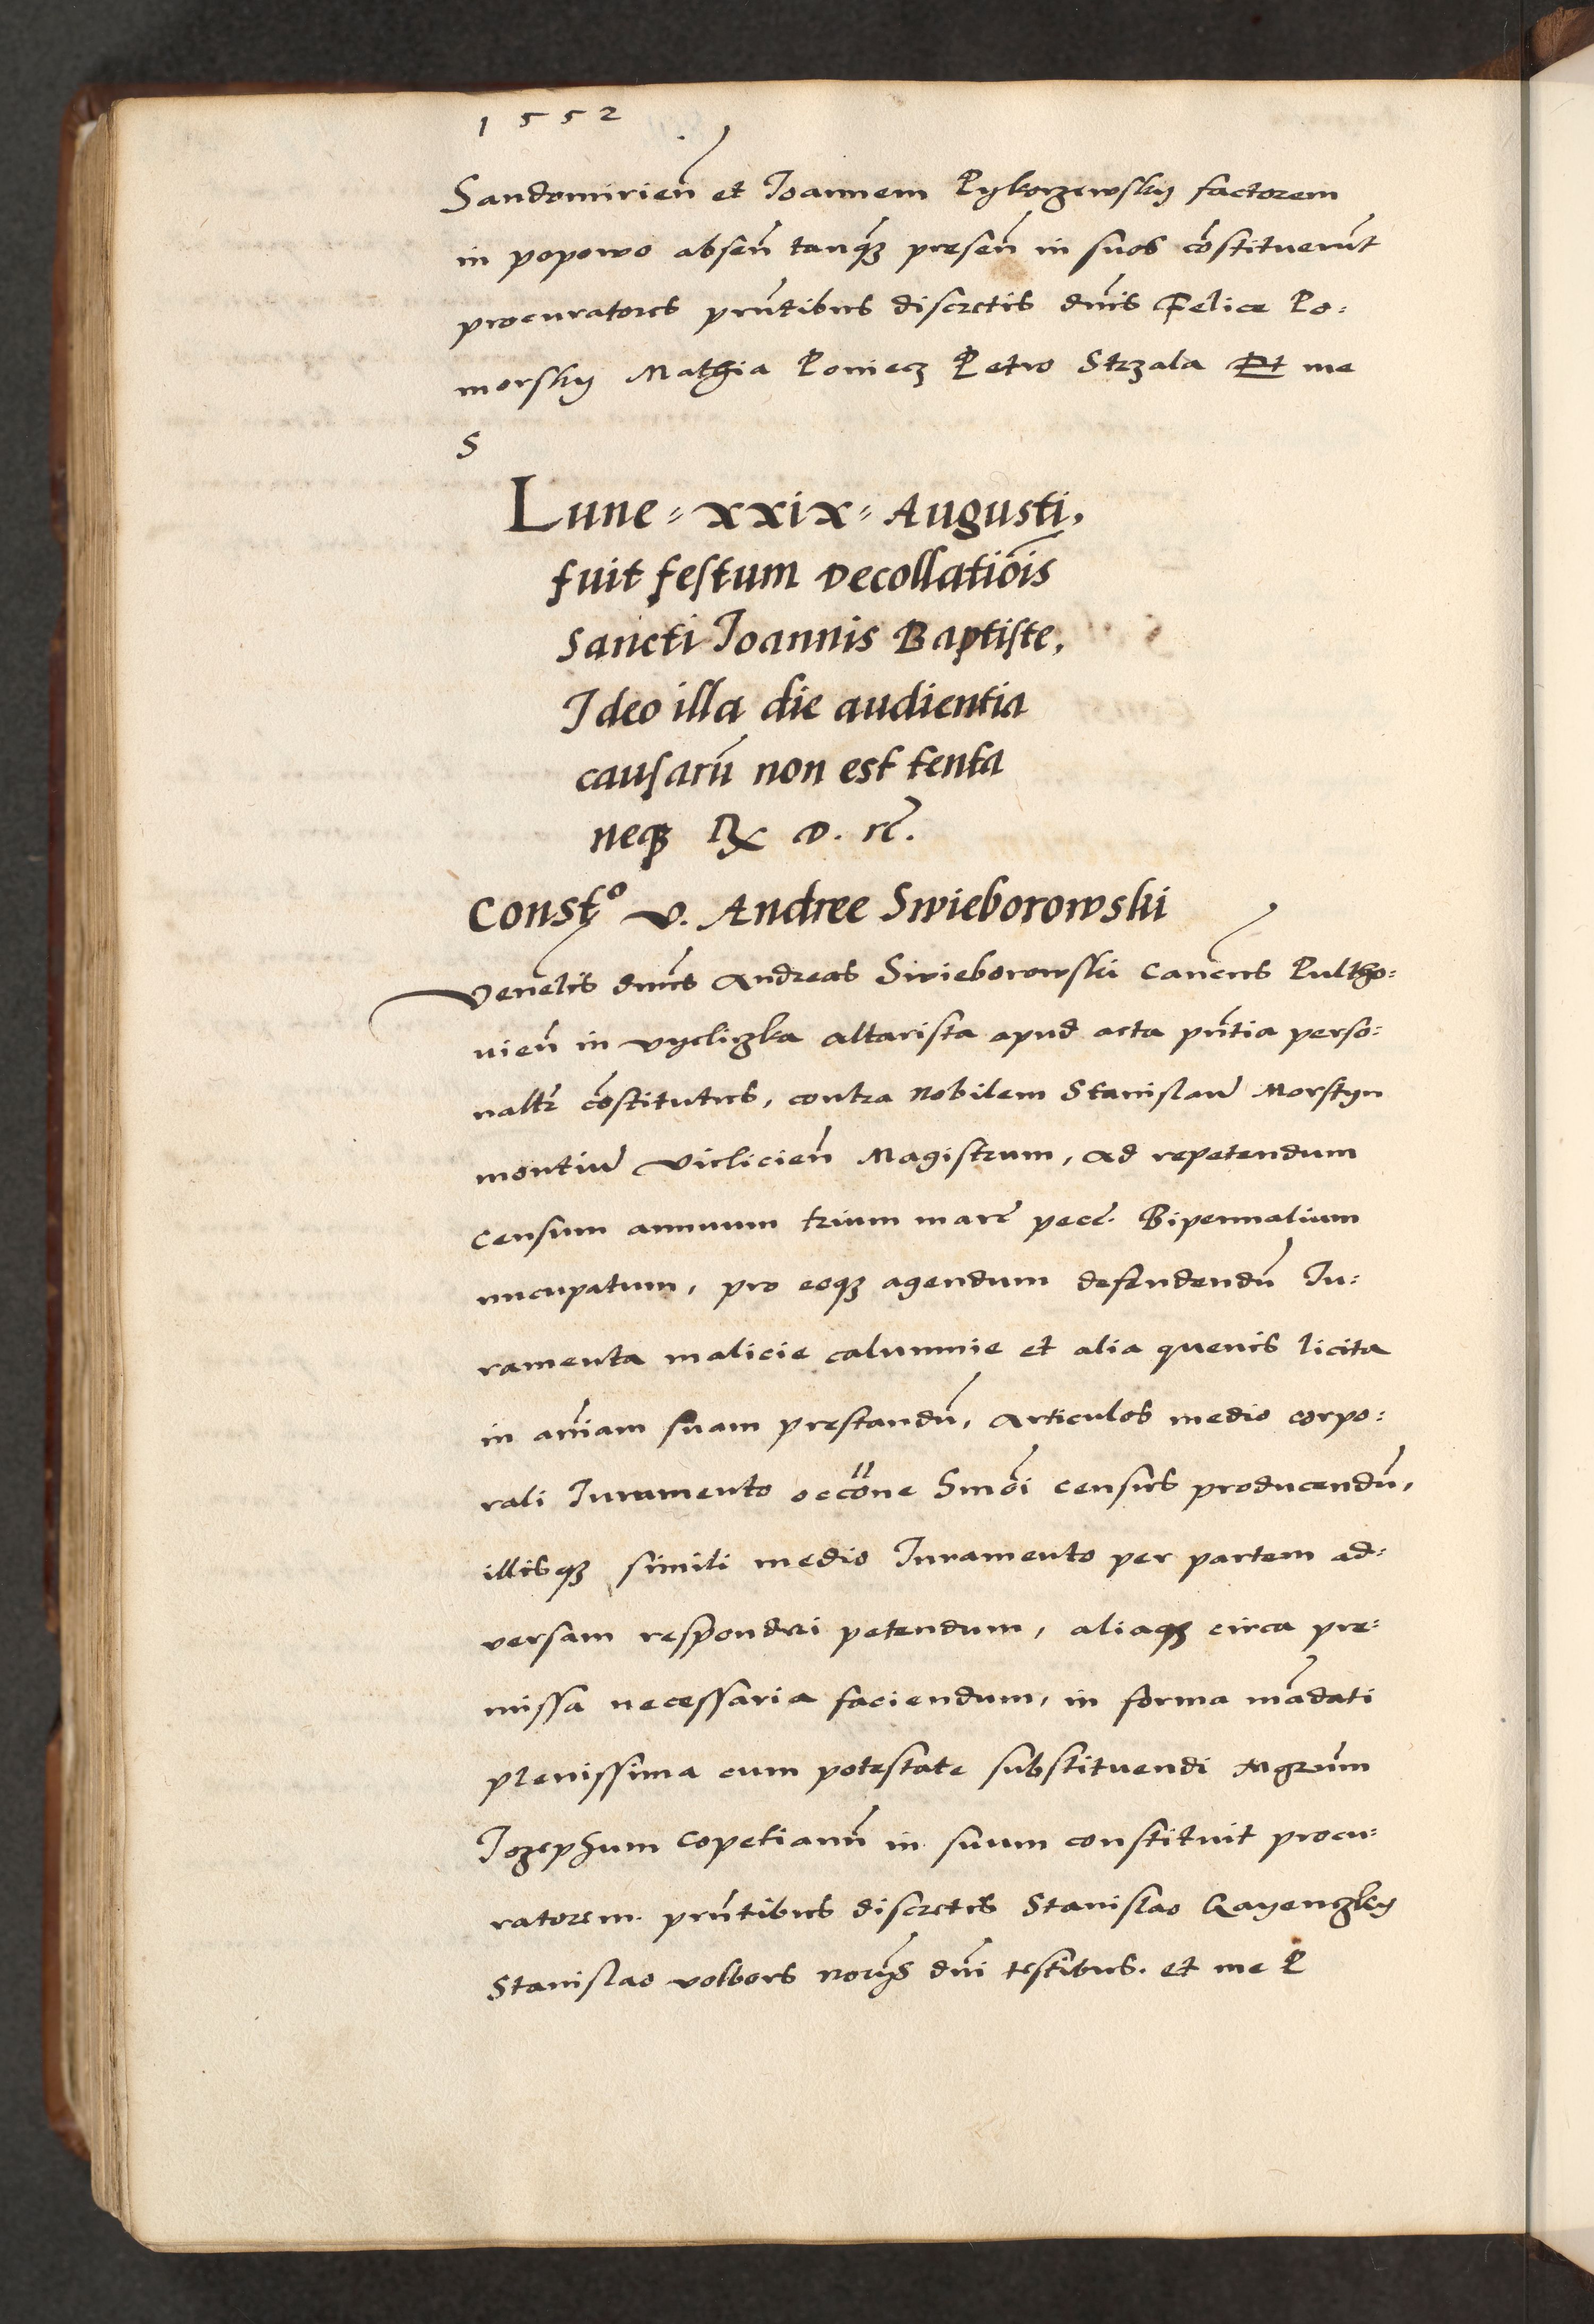 1552
Sandomirien̄ et Joannem Pykorzewsky factorem
in popowo absen̄ tanq̄ʒ presen̄ in suos cōstituerūt
procuratores pn̄tibus discretis dn̄is Felice Po:
morsky Mathia Poniecz Petro Strzala Et me
S
Lune = xxix = Augusti,
fuit festum Decollatiōis
Sancti Joannis Baptiste,
Ideo illa die audientia
causarū non est tenta
neqʒ Rx D. rc̄.
Constº v. Andree Swieborowski
Venelis dn̄us Andreas Swieborowski Canc̄us Pultho:
uien̄ in vycliczka altarista apud acta pn̄tia perso:
naltr̄ cōstitutus, contra Nobilem Stanislaū Morstyn
montiū Vielicien̄ Magistrum, ad repetendum
censum annuum trium marc̄ pecc̄. Bipennalium
nucupatum, pro eoqʒ agendum defendendū Ju:
ramenta malicie calumnie et alia quevis licita
in an̄iam suam prestandū, Articulos medio corpo:
rali Juramento occōne Smōi census producendū,
illisqʒ simili medio Juramento per partem ad:
versam responderi petendum, aliaqʒ circa pre:
missa necessaria faciendum, in forma mādati
plenissima cum potestate substituendi Mgrūm
Jozephum Copetianū in suum constituit procu:
ratorem. pn̄tibus discretis Stanislao Gayenczky
Stanislao volbors dn̄i testibus. et me P